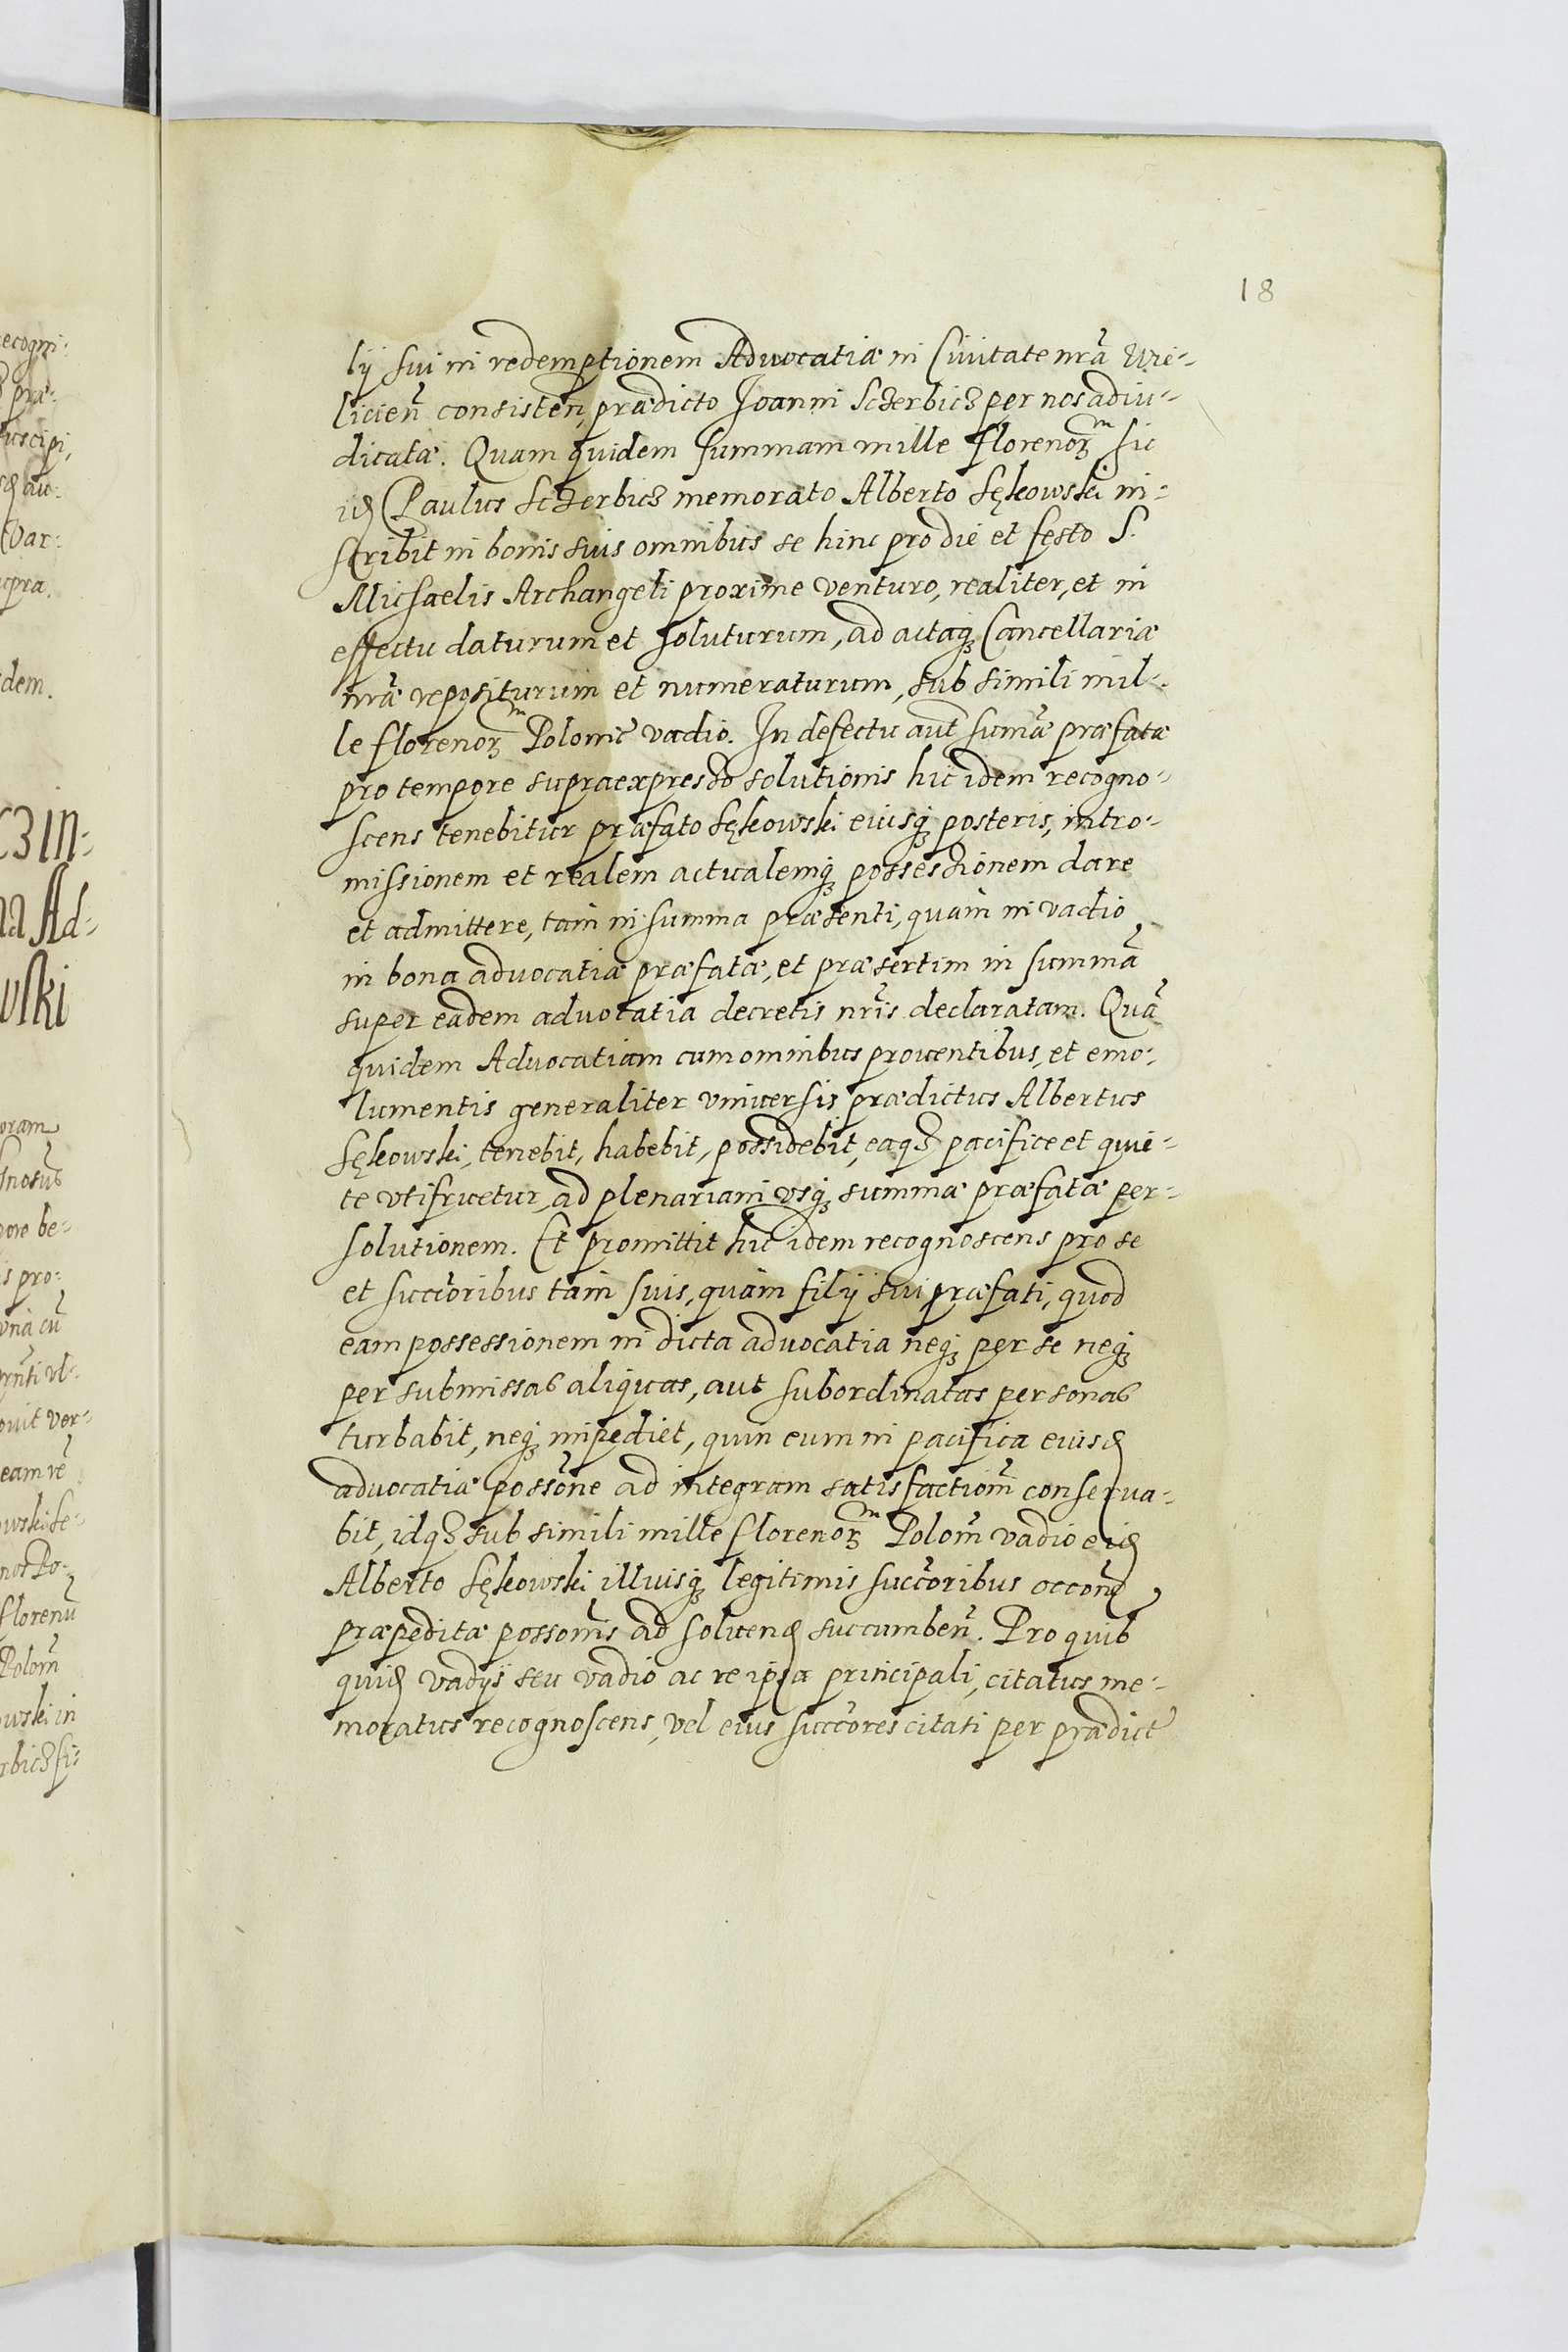 18
lij sui in redemptionem Advocatiæ in Civitate nrã Wie-
licien̄ consisten̄, prædicto Joanni Sczerbicz per nos adiu-
dicatæ. Quam quidem summam mille florenorᵐ sic
id Paulus Sczerbicz memorato Alberto Sękowski in-
scribit in bonis suis omnibus se hinc pro die et festo S.
Michaelis Archangeli proxime venturo, realiter, et in
effectu daturum et soluturum, ad actaq Cancellariæ
nræ̃ repositurum et numeraturum, sub simili mil-
le florenorᵐ Polonic̃ vadio. In defectu aut̃ sum̃æ præfatæ
pro tempore supraexpresso solutionis hic idem recogno-
scens tenebitur præfato Sękowski eiusq posteris, intro-
missionem et realem actualemq possessionem dare
et admittere, tam in summa præsenti, quàm in vadio
in bona advocatiæ præfatæ, et præsertim in summã
super eadem advocatia decretis nrĩs declaratam. Quã
quidem Advocatiam cum omnibus proventibus, et emo-
lumentis generaliter universis prædictus Albertus
Sękowski, tenebit, habebit, possidebit, eaqȝ pacifice et quie-
te utifruetur, ad plenariam usq summæ præfatæ per-
solutionem. Et promittit hic idem recognoscens pro se
et succõribus tàm suis, quàm filij sui præfati, quod
eam possessionem in dicta advocatia neq per se neq
per submissas aliquas, aut subordinatas personas
turbabit, neq impediet, quin eum in pacifica eiusd
advocatiæ possõne ad integram satisfactiom̃ conserva-
bit, idqȝ sub simili mille florenorᵐ Polon̄ vadio eid
Alberto Sękowski illiusq legitimis succõribus occon̄e
præpeditæ possoñis ad solvend succumben̄. Pro quib
quid vadijs seu vadio ac re ipsa principali, citatus me-
moratus recognoscens, vel eius succõres citati per prædict̃
ecogni:
præ:
uscipi,
d au:
Var:
upra.
dem.
czin:
na Ad-
wski
oram
be-
s pro:
unà cũ
ovit ver-
eam re
owski se-
Po-
florenũ
Polon̄
owski in
rbicz fi-